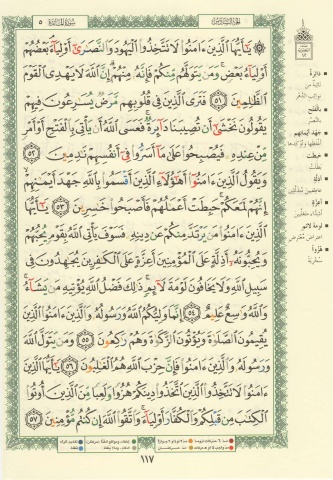 سورة المائدة ٥
الجزء السادس
۞ يَٰٓأَيُّهَا ٱلَّذِينَ ءَامَنُوا۟ لَا تَتَّخِذُوا۟ ٱلْيَهُودَ وَٱلنَّصَٰرَىٰٓ أَوْلِيَآءَ بَعْضُهُمْ
أَوْلِيَآءُ بَعْضٍ وَمَن يَتَوَلَّهُم مِّنكُمْ فَإِنَّهُۥ مِنْهُمْ إِنَّ ٱللَّهَ لَا يَهْدِى ٱلْقَوْمَ
ٱلظَّٰلِمِينَ ٥١ فَتَرَى ٱلَّذِينَ فِى قُلُوبِهِم مَّرَضٌ يُسَٰرِعُونَ فِيهِمْ
يَقُولُونَ نَخْشَىٰٓ أَن تُصِيبَنَا دَآئِرَةٌ فَعَسَى ٱللَّهُ أَن يَأْتِىَ بِٱلْفَتْحِ أَوْ أَمْرٍ
مِّنْ عِندِهِۦ فَيُصْبِحُوا۟ عَلَىٰ مَآ أَسَرُّوا۟ فِىٓ أَنفُسِهِمْ نَٰدِمِينَ ٥٢
وَيَقُولُ ٱلَّذِينَ ءَامَنُوٓا۟ أَهَٰٓؤُلَآءِ ٱلَّذِينَ أَقْسَمُوا۟ بِٱللَّهِ جَهْدَ أَيْمَٰنِهِمْ
إِنَّهُمْ لَمَعَكُمْ حَبِطَتْ أَعْمَٰلُهُمْ فَأَصْبَحُوا۟ خَٰسِرِينَ ٥٣ يَٰٓأَيُّهَا
ٱلَّذِينَ ءَامَنُوا۟ مَن يَرْتَدَّ مِنكُمْ عَن دِينِهِۦ فَسَوْفَ يَأْتِى ٱللَّهُ بِقَوْمٍ يُحِبُّهُمْ
وَيُحِبُّونَهُۥٓ أَذِلَّةٍ عَلَى ٱلْمُؤْمِنِينَ أَعِزَّةٍ عَلَى ٱلْكَٰفِرِينَ يُجَٰهِدُونَ فِى
سَبِيلِ ٱللَّهِ وَلَا يَخَافُونَ لَوْمَةَ لَآئِمٍ ذَٰلِكَ فَضْلُ ٱللَّهِ يُؤْتِيهِ مَن يَشَآءُ
وَٱللَّهُ وَٰسِعٌ عَلِيمٌ ٥٤ إِنَّمَا وَلِيُّكُمُ ٱللَّهُ وَرَسُولُهُۥ وَٱلَّذِينَ ءَامَنُوا۟ ٱلَّذِينَ
يُقِيمُونَ ٱلصَّلَوٰةَ وَيُؤْتُونَ ٱلزَّكَوٰةَ وَهُمْ رَٰكِعُونَ ٥٥ وَمَن يَتَوَلَّ ٱللَّهَ
وَرَسُولَهُۥ وَٱلَّذِينَ ءَامَنُوا۟ فَإِنَّ حِزْبَ ٱللَّهِ هُمُ ٱلْغَٰلِبُونَ ٥٦ يَٰٓأَيُّهَا ٱلَّذِينَ
ءَامَنُوا۟ لَا تَتَّخِذُوا۟ ٱلَّذِينَ ٱتَّخَذُوا۟ دِينَكُمْ هُزُوًا وَلَعِبًا مِّنَ ٱلَّذِينَ أُوتُوا۟
ٱلْكِتَٰبَ مِن قَبْلِكُمْ وَٱلْكُفَّارَ أَوْلِيَآءَ وَٱتَّقُوا۟ ٱللَّهَ إِن كُنتُم مُّؤْمِنِينَ ٥٧
دائرة
بالفتح
جهد أيمانهم
حبطت
بطلت
أذلة
أعزة
لومة لائم
هزوا
سخرية
١١٧